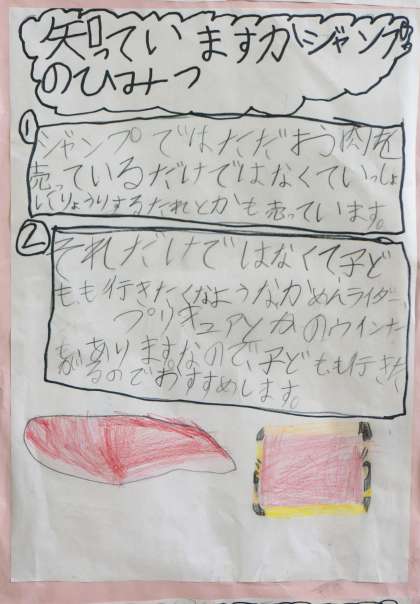 知っていますかジャンプ
のひみつ
①
ジャンプではただおう肉を
売っているだけではなくていっしょ
にりょうりするたれとかも売っています。
②
それだけではなくて子ど
もも行きたくなようなかめんライダー、
プリキュアとかのウインナー
があります。なので、子どもも行きたく
なるのでおすすめします。